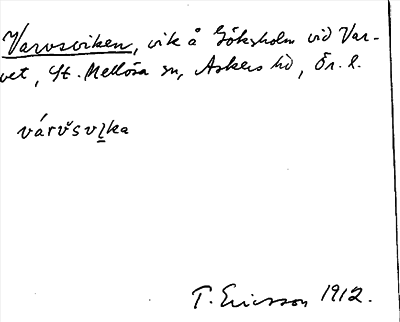 Varvsviken, vik å Göksholm vid Var-
vet, St. Mellösa sn, Askers hd, Ör. l.
várv̆svi̲ka
T. Ericsson 1912.